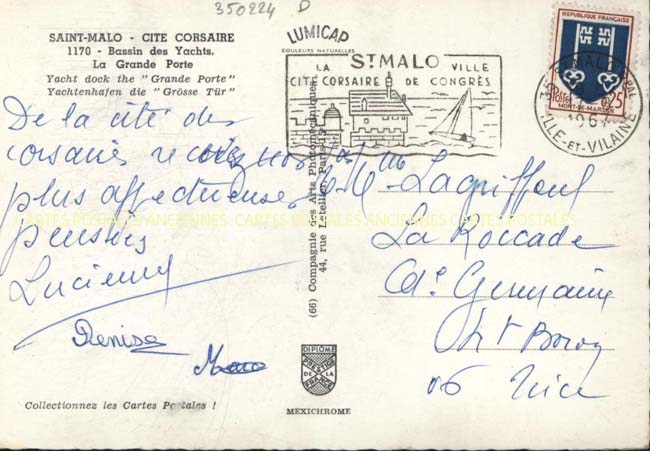 350224 D
SAINT-MALO - CITE CORSAIRE
1170 - Bassin des Yachts.
La Grande Porte
Yacht dock the "Grande Porte"
Yachtenhafen die "Grösse Tür"
LUMICAP
COULEURS NATURELLES
ST MALO
LA VILLE
CITE CORSAIRE DE CONGRÈS
REPUBLIQUE FRANÇAISE
POSTES 0,25
MONT-DE-MARSAN
ILLE-ET-VILAINE
De la cité des
corsaires recevez nos
plus affectueuses
pensées
Lucienne
Denise
La Roccade
Germaine
06 Nice
(66) Compagnie des Arts Photomécaniques
44, rue Letellier, Paris-15
DIPLOME
PRESTIGE
DE LA
FRANCE
MEXICHROME
Collectionnez les Cartes Postales !
CARTES POSTALES ANCIENNES CARTES POSTALES ANCIENNES CARTES POSTALES